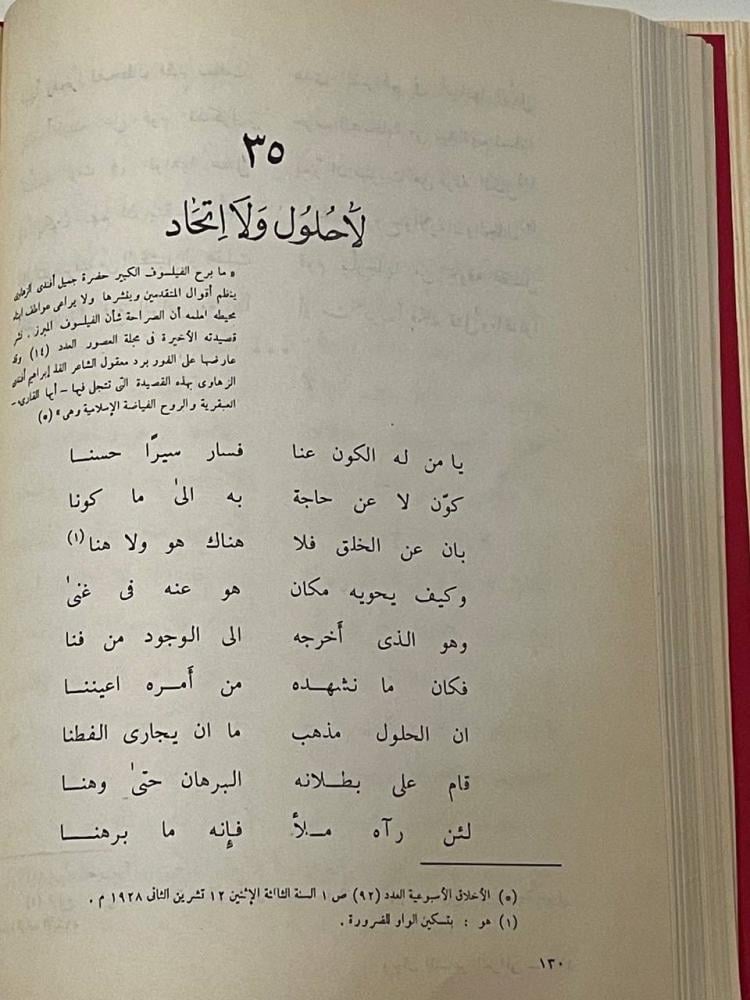 ٣٥
لَا حُلُول وَلَا اِتحَاد
« ما برح الفيلسوف الكبير حضرة جميل أفندى الزهاوى
ينظم أقوال المتقدمين وينشرها ولا يراعى عواطف ابناء
محيطه لعلمه أن الصراحة شأن الفيلسوف المبرز . نشر
قصيدته الأخيرة فى مجلة العصور العدد (١٤) وقد
عارضها على الفور برد معقول الشاعر الفذ إبراهيم أفندى
الزهاوى بهذه القصيدة التى تتجلى فيها – أيها القارىء –
العبقرية والروح الفياضة الإسلامية وهى » (٥)
يا من له الكون عنا فسار سيرًا حسنـا
كوّن لا عن حاجة به الىٰ ما كونا
بان عن الخلق فلا هناك هو ولا هنا(١)
وكيف يحويه مكان هو عنه فى غنىٰ
وهو الذى أخرجه الى الوجود من فنا
فكان ما نشهـده من أمـره اعيننـا
ان الحلول مذهب ما ان يجارى الفطنا
قام على بطـلانه البرهان حتىٰ وهنـا
لئن رآه مـلأ فإنه ما برهنــا
(٥) الأخلاق الأسبوعية العدد (٩٢) ص ١ السنة الثالثة الإثنين ١٢ تشرين الثانى ١٩٢٨ م .
(١) هو : بتسكين الواو للضرورة .
١٣٠